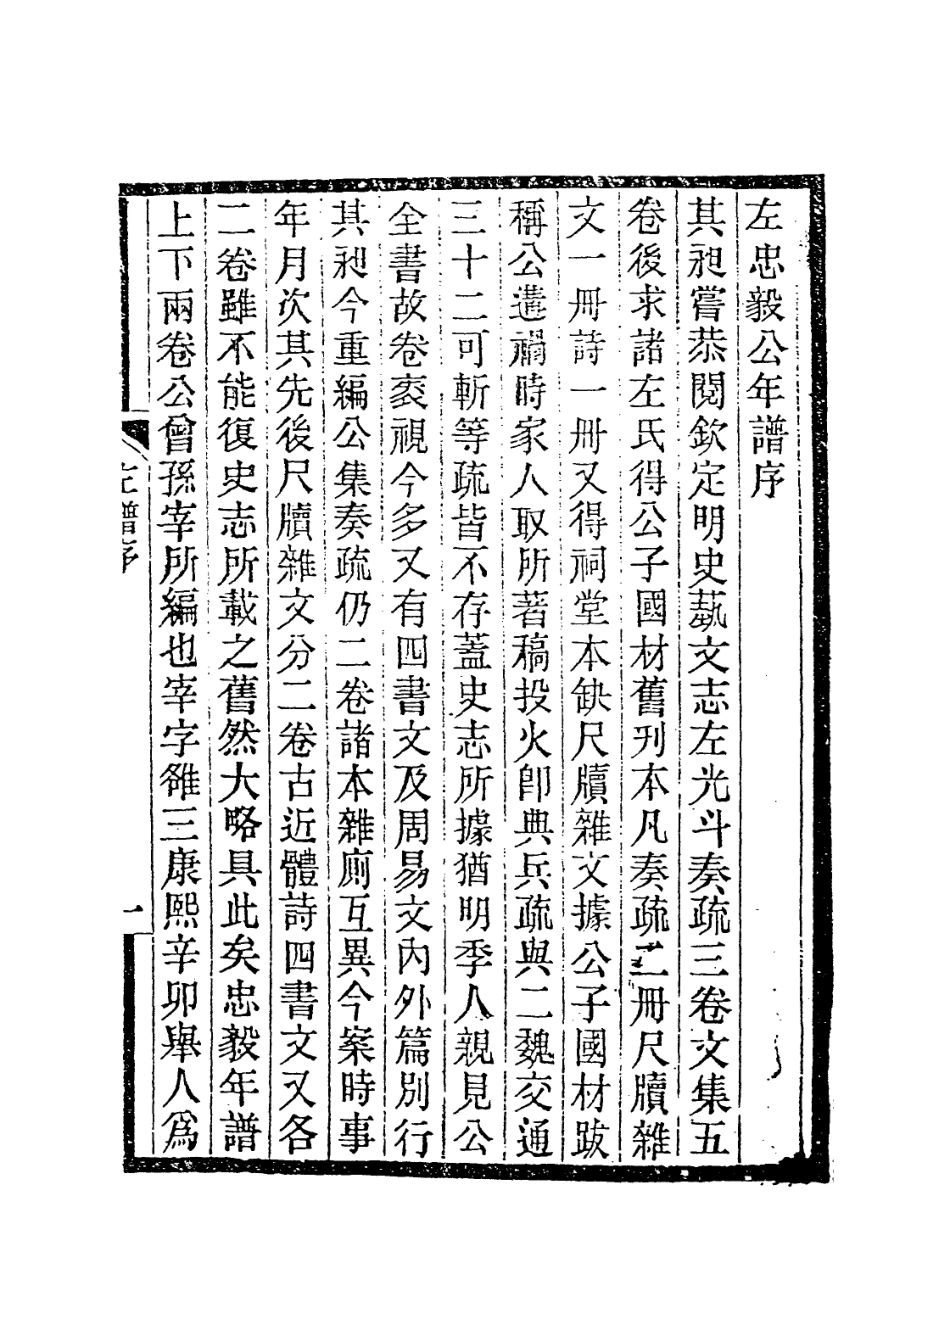 左忠毅公年譜序
其昶嘗恭閱欽定明史藝文志左光斗奏疏三卷文集五
卷後求諸左氏得公子國材舊刋本凡奏疏二冊尺牘雜
文一冊詩一冊又得祠堂本缺尺牘雜文據公子國材跋
稱公遘禍時家人取所著稿投火卽典兵疏與二魏交通
三十二可斬等疏皆不存蓋史志所據猶明季人親見公
全書故卷袠視今多又有四書文及周易文內外篇別行
其昶今重編公集奏疏仍二卷諸本雜廁互異今案時事
年月次其先後尺牘雜文分二卷古近體詩四書文又各
二卷雖不能復史志所載之舊然大略具此矣忠毅年譜
上下兩卷公曾孫宰所編也宰字雒三康熙辛卯舉人爲
譜序
一